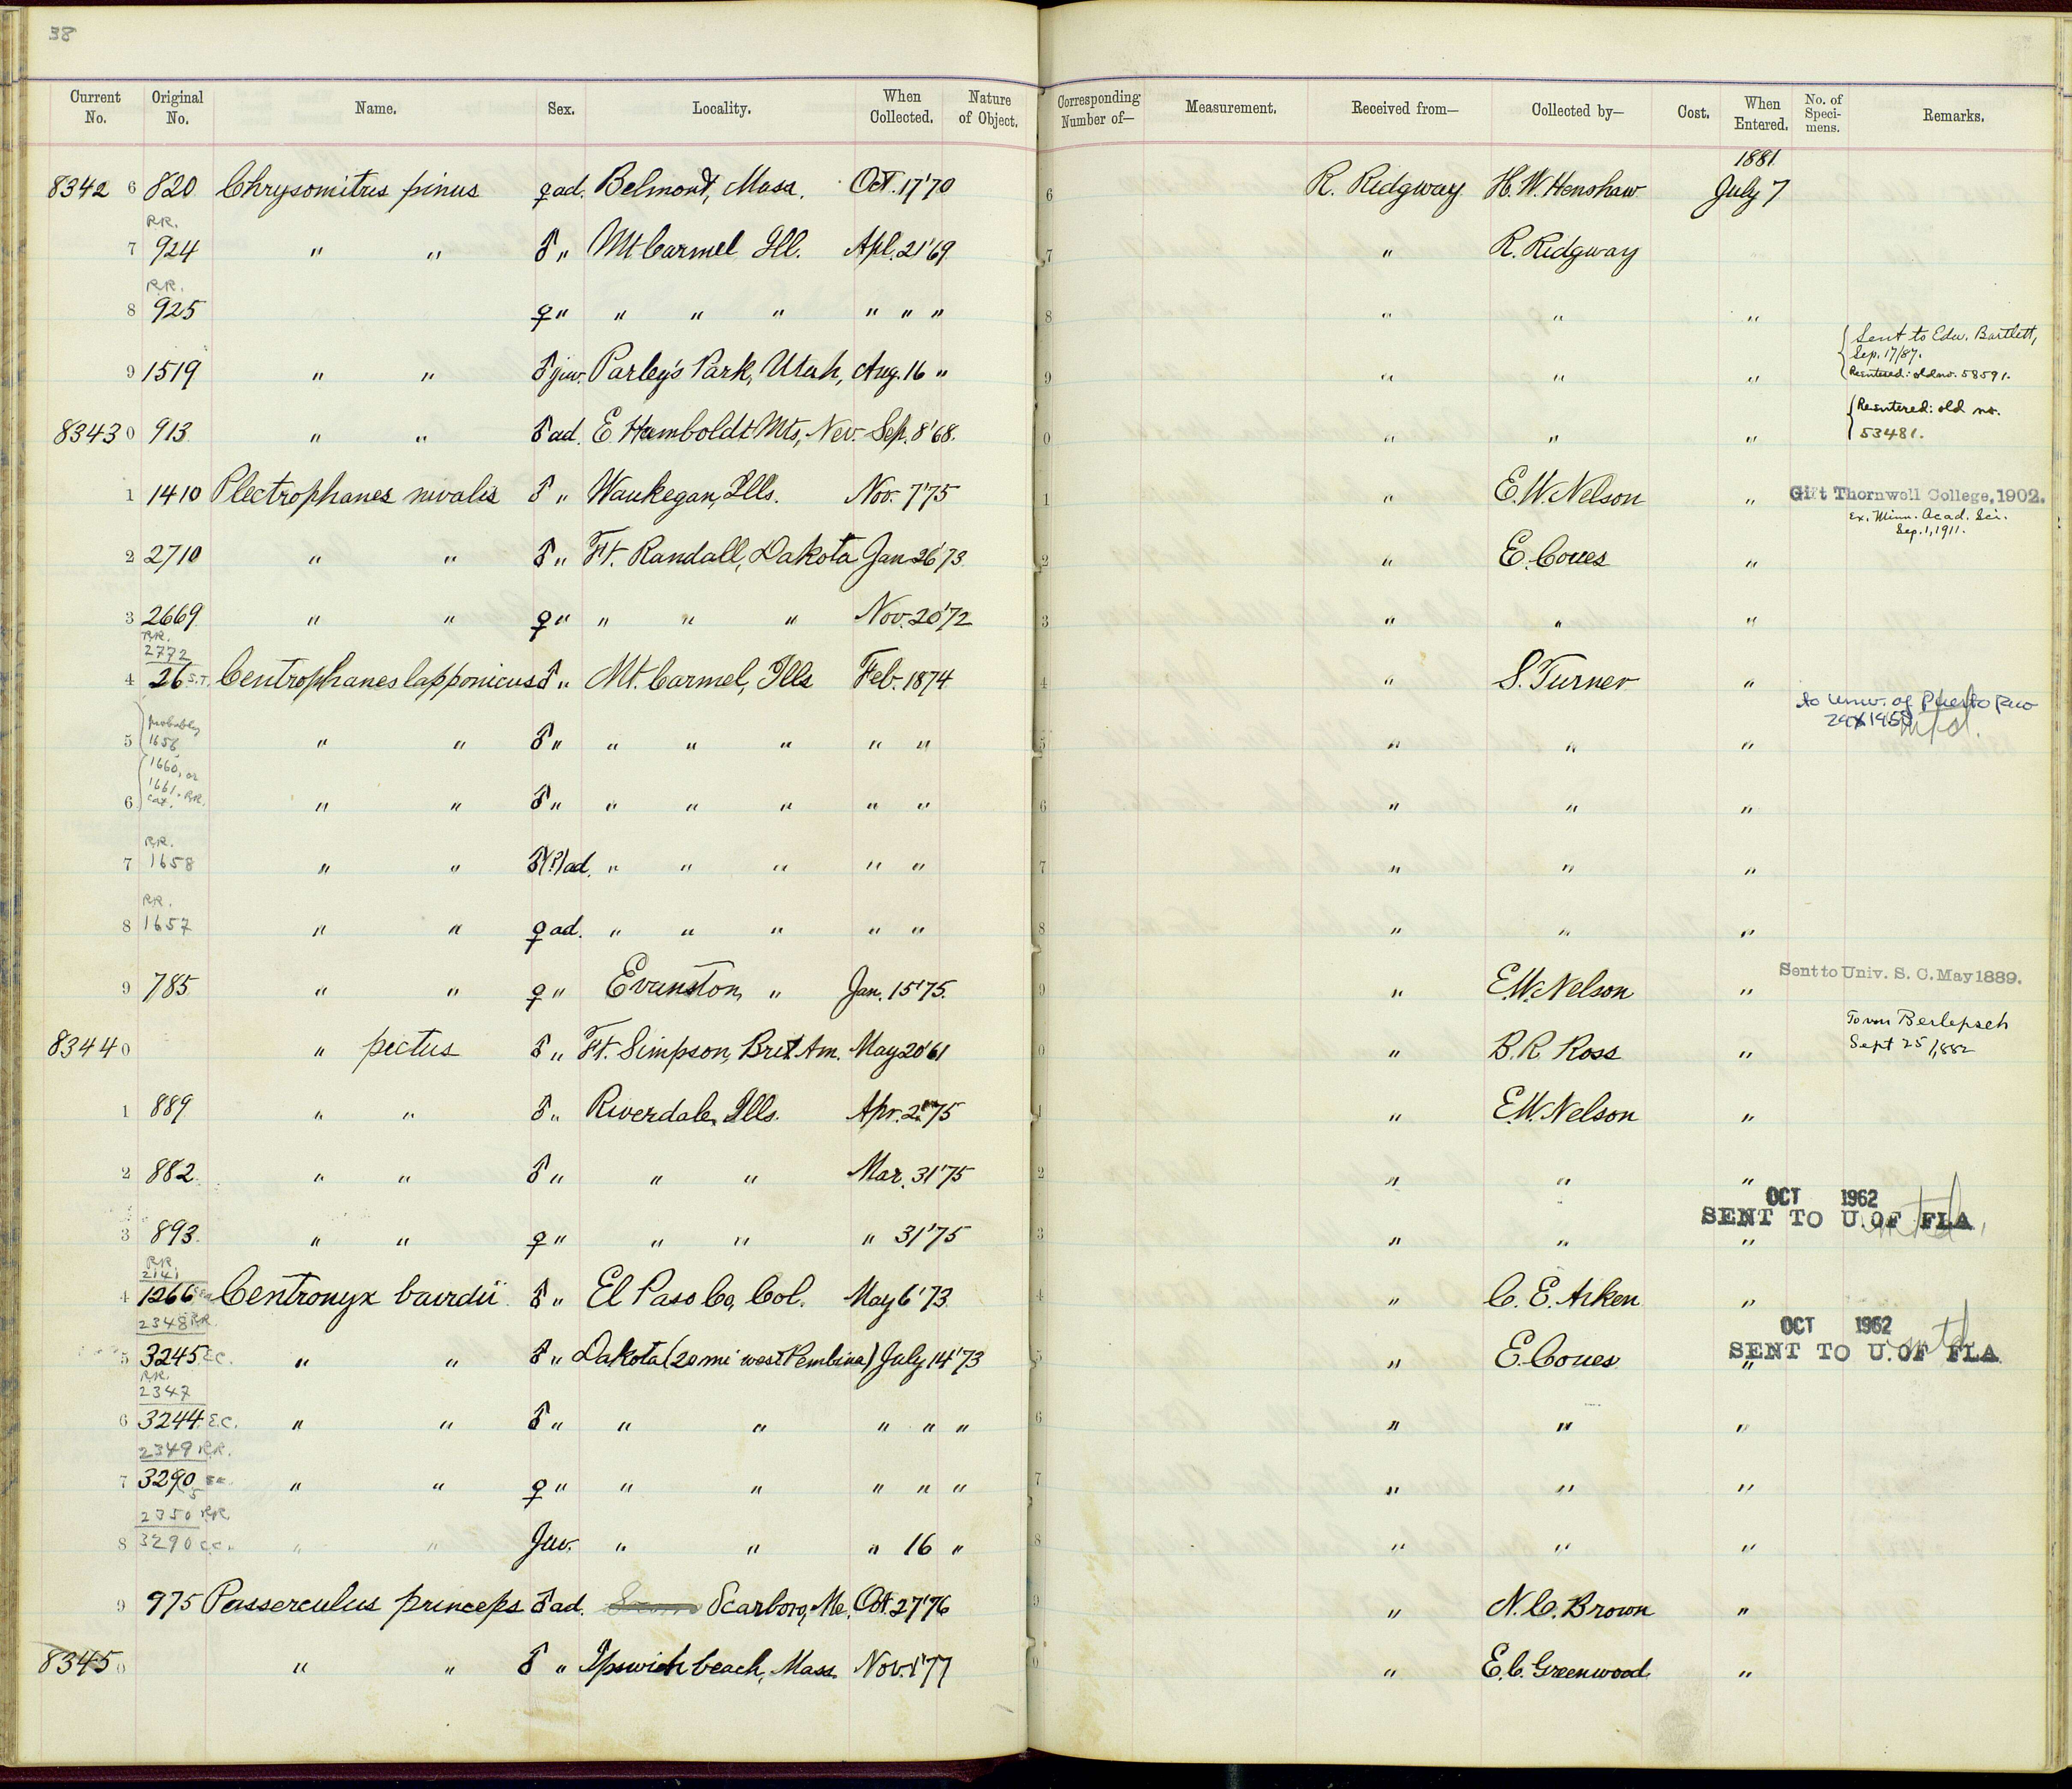 38
Current No. Original No. Name. Sex. Locality. When Collected. Nature of Object. Corresponding Number of— Measurement. Received from— Collected by— Cost. When Entered. No. of Speci-mens. Remarks.
1881
8342 6 820 Chrysomitris pinus ♀ ad. Belmont, Mass. Oct. 17 '70 6 R. Ridgway H. W. Henshaw July 7
R.R.
7 924 " " ♂ " Mt Carmel Ill. Apl. 21 '69 7 " R. Ridgway
R.R.
8 925 ♀ " " " " " " " 8 " " "
9 1519 " " ♂ juv. Parley's Park, Utah, Aug. 16 " 9 " " " Sent to Edw. Bartlett, Sep. 17/87. Reentered: old no. 58591.
8343 0 913 " " ♂ ad. E Humboldt Mts, Nev. Sep. 8 '68. 0 " " " Reentered: old no. 53481.
1 1410 Plectrophanes nivalis ♂ " Waukegan, Ills. Nov. 7 '75 1 " E. W. Nelson " Gift Thornwell College, 1902.
Ex. Minn. Acad. Sci. Sep. 1, 1911.
2 2710 " " ♂ " Ft. Randall, Dakota Jan 26 '73 2 " E. Coues "
3 2669 " " ♀ " " " " Nov. 20 '72 3 " " "
R.R.
2772
4 26 S.T. Centrophanes lapponicus ♂ " Mt. Carmel, Ills Feb. 1874 4 " S. Turner "
to Univ. of Puerto Rico
5 probably 1656 " " ♂ " " " " " " 5 " " "
6 1660, or 1661. R.R. cat. " " ♂ " " " " " " 6 " " "
R.R.
7 1658 " " ♂(?) ad. " " " " " 7 " " "
R.R.
8 1657 " " ♀ ad. " " " " " 8 " " "
9 785 " " ♀ " Evanston, " Jan. 15 '75. 9 " E.W. Nelson " Sent to Univ. S. C. May 1889.
8344 0 " pictus ♂ " Ft. Simpson, Brit Am. May 20 '61 0 " B. R. Ross " To von Berlepsch Sept 25/1882
1 889 " " ♂ " Riverdale, Ills. Apr. 2 '75 1 " E.W. Nelson "
2 882 " " ♂ " " " Mar. 31 '75 2 " " "
OCT 1962
SENT TO U. OF FLA
3 893 " " ♀ " " " " 31 '75 3 " " "
R.R.
2141
4 1266 Centronyx bairdii ♂ " El Paso Co, Col. May 6 '73 4 " C. E. Aiken "
2348 R.R.
OCT 1962
SENT TO U. OF FLA
5 3245 E.C. " " ♂ " Dakota (20 mi west Pembina) July 14 '73 5 " E. Coues "
R.R.
2347
6 3244 E.C. " " ♂ " " " " " " 6 " " "
2349 R.R.
7 3290 E.C. " " ♀ " " " " " " 7 " " "
5
2350 R.R.
8 3290 E.C. " " Juv. " " " 16 " 8 " " "
9 975 Passerculus princeps ♂ ad. Scarboro, Me. Oct. 27 '76 9 " N. C. Brown "
8345 0 " " ♂ " Ipswich beach, Mass. Nov. 1 '77 0 " E. C. Greenwood "